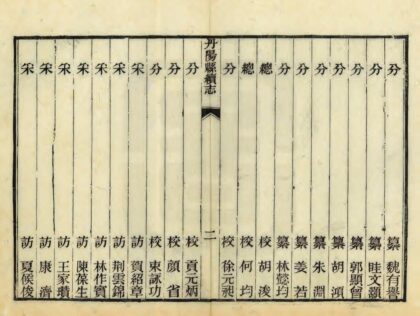 分纂 魏有譽
分纂 眭文灝
分纂 郭顯曾
分纂 胡澒
分纂 朱淵
分纂 姜若
分纂 林懿均
總校 胡浚
總校 何均
分校 徐元昶
丹陽縣續志 二
分校 貢元炳
分校 顏省
分校 束諑功
采訪 賀紹章
采訪 荊雲錦
采訪 林作賓
采訪 陳葆生
采訪 王家瓚
采訪 康濟
采訪 夏候俊